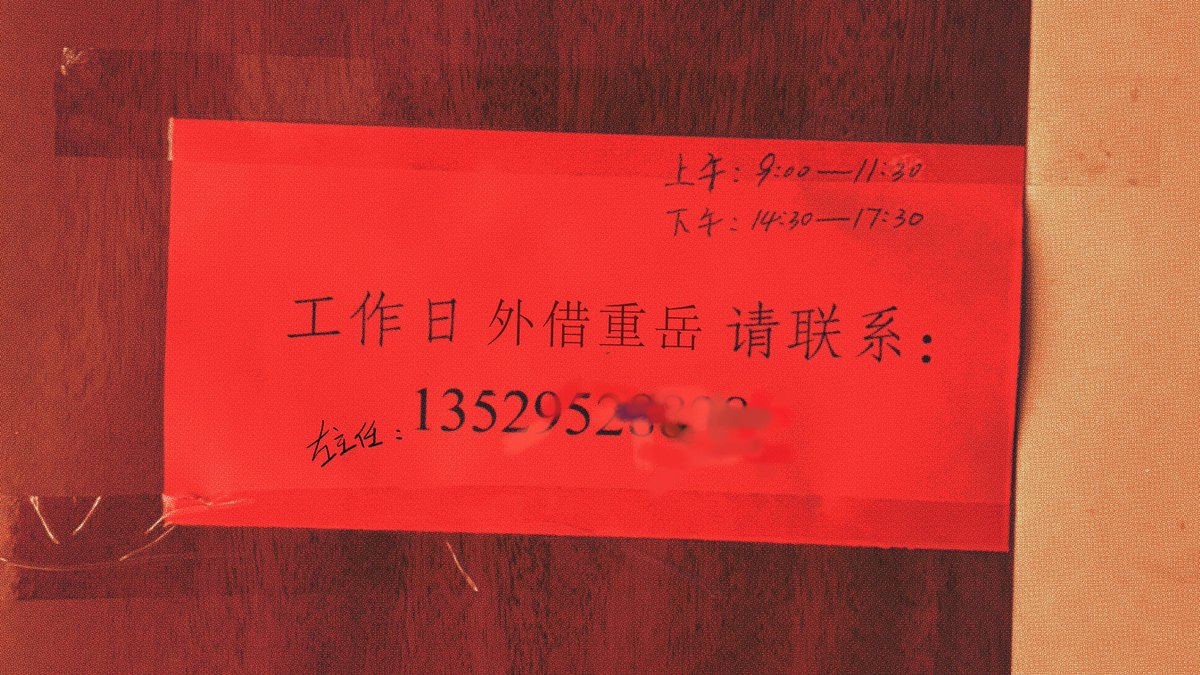 上午：9:00—11:30
下午：14:30—17:30
工作日 外借重岳 请联系：
左主任：13529528